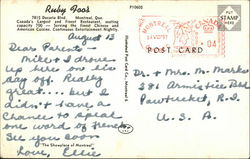 Ruby Foo's
7815 Decarie Blvd. Montreal, Que.
Canada's Largest and Finest Restaurant, seating
capacity 700 — Serving the finest Chinese and
American Cuisine. Continuous Entertainment Nightly.
P10602
PLACE
STAMP
HERE
MONTREAL
CANADA
04
POST CARD
August 13
Dear Parents
Mike & I drove
up here on his
day off. Really
great... but I
didn't have a
chance to speak
one word of French
See you soon
Love, Ellie
"The Showplace of Montreal"
Dr. & Mrs. M. Marks
391 Armistice Blvd
Pawtucket, R.I.
U.S.A.